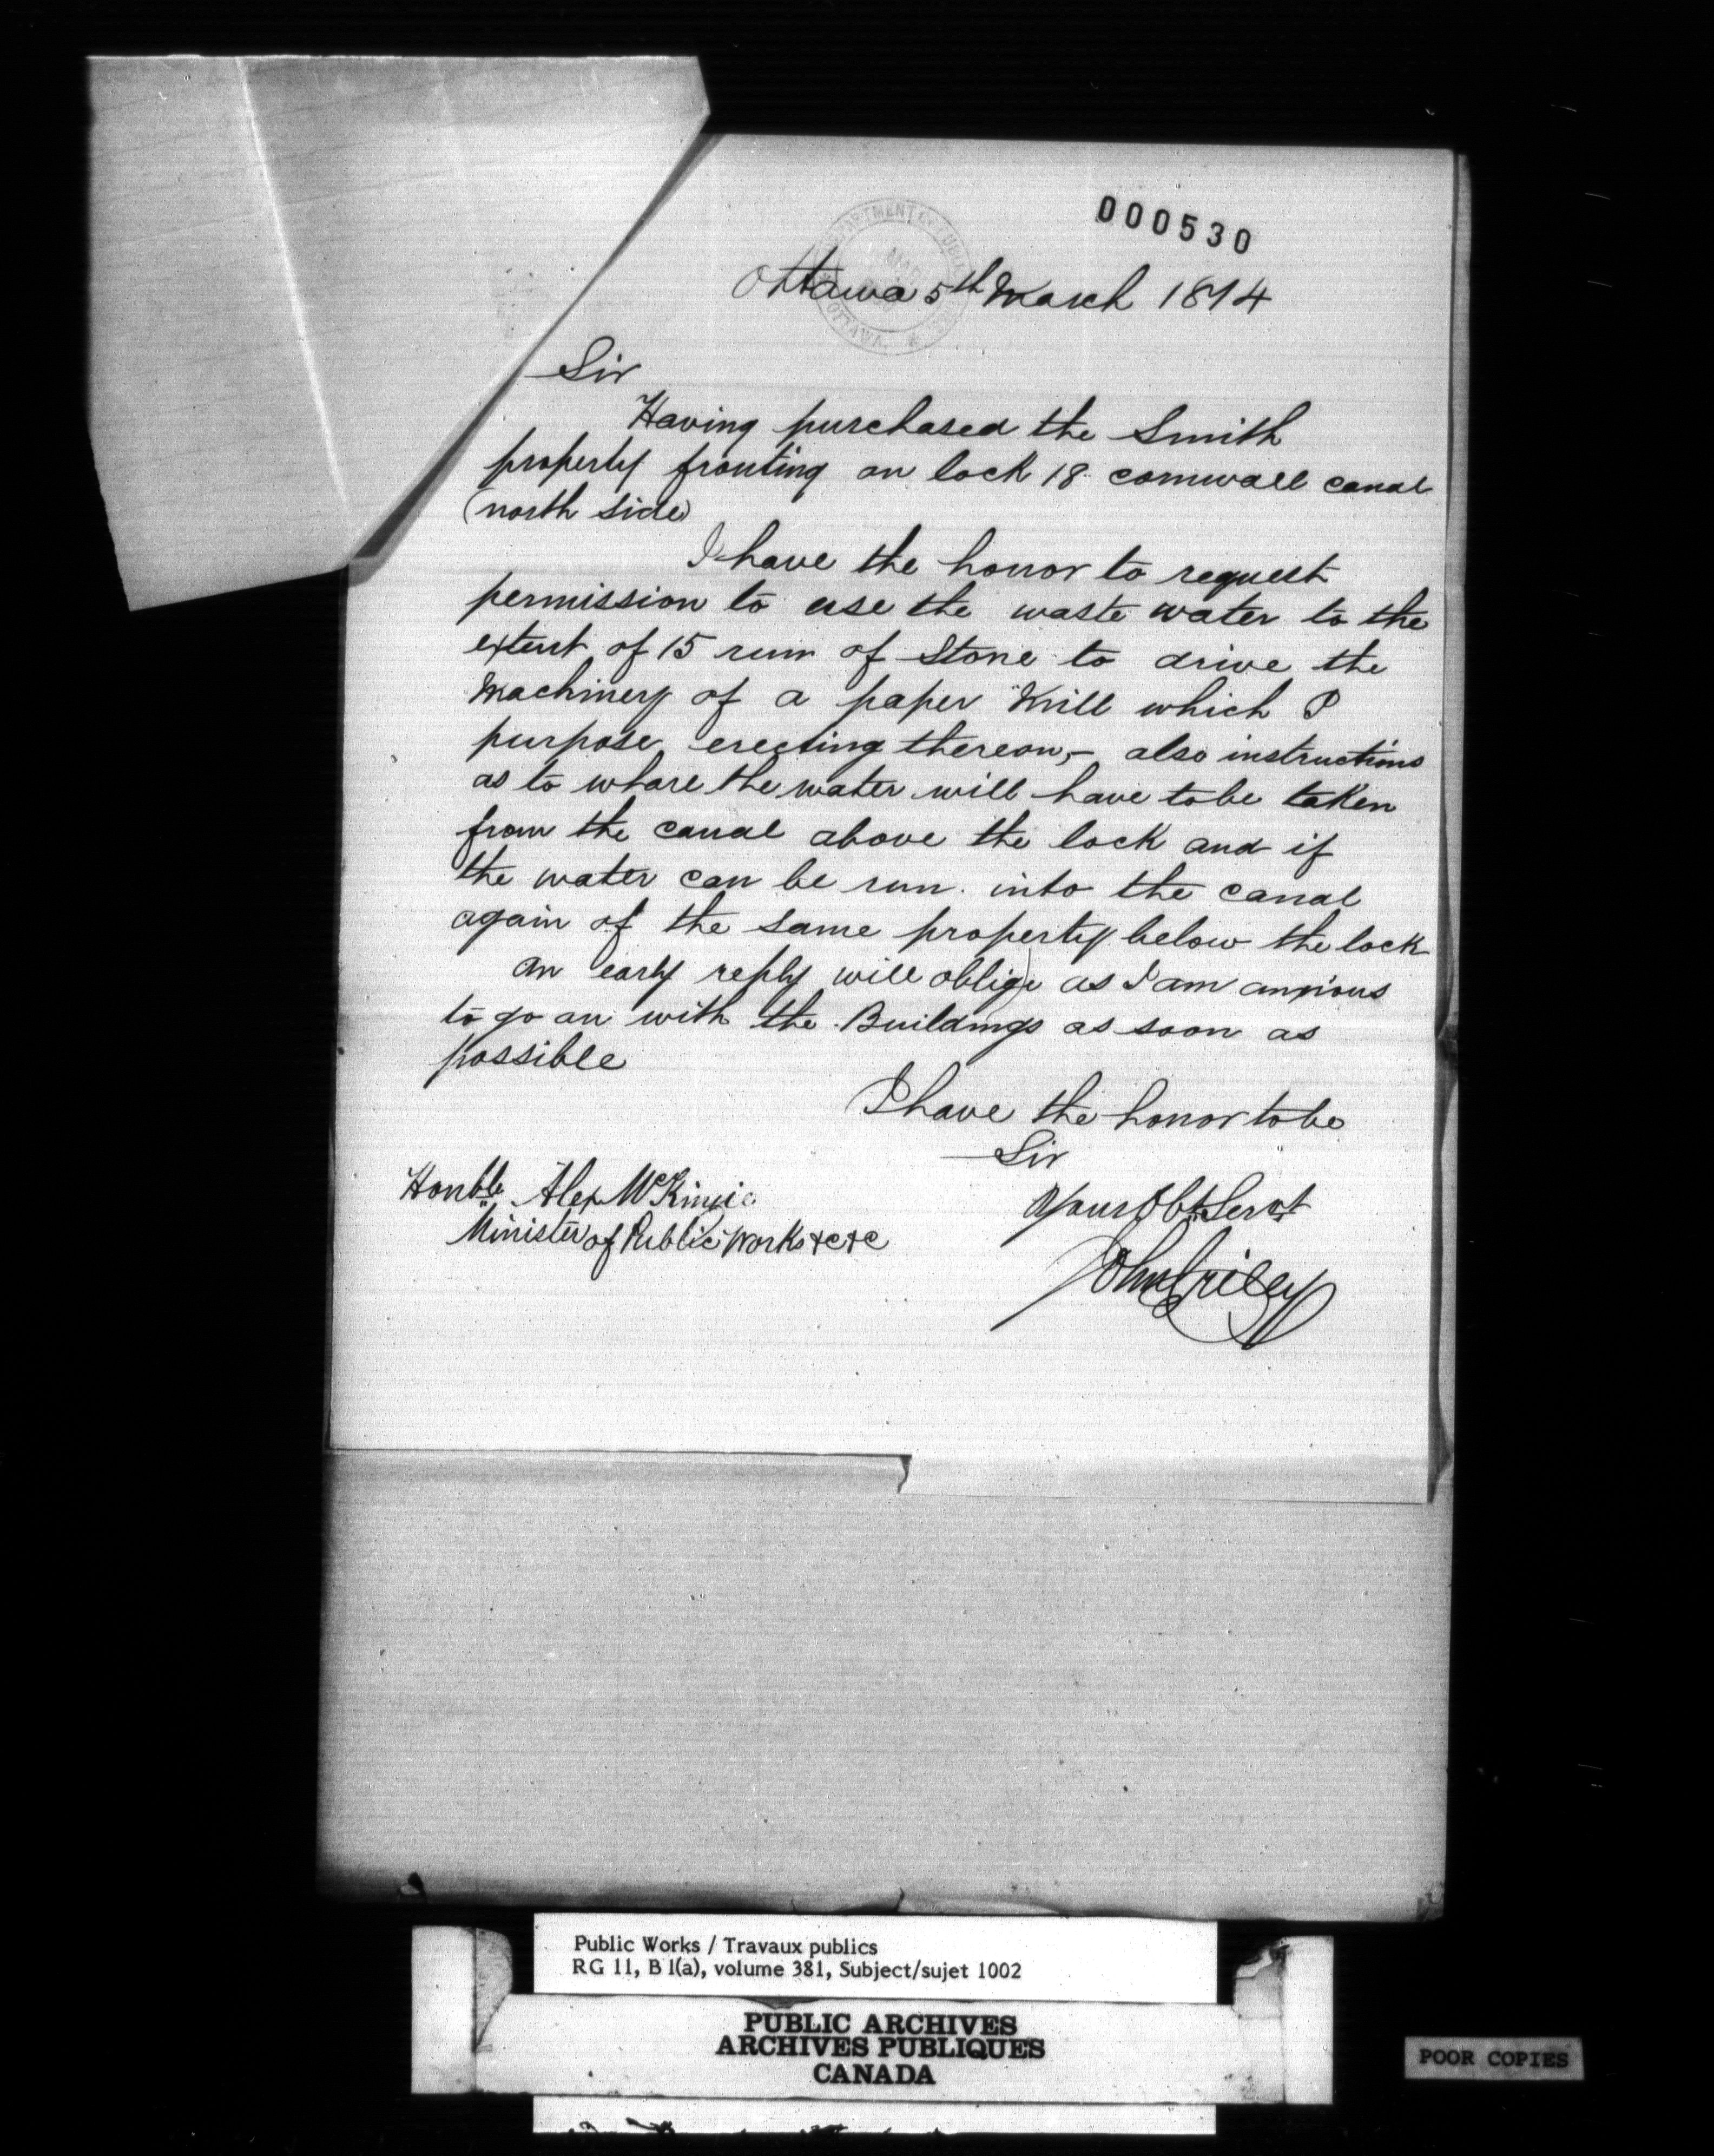 000530
DEPARTMENT OF PUBLIC
OTTAWA
Ottawa 5th March 1874
Sir
Having purchased the Smith
property fronting on lock 18 cornwall canal
(north side)
I have the honor to request
permission to use the waste water to the
extent of 15 run of Stone to drive the
Machinery of a paper Mill which I
purpose erecting thereon,- also instructions
as to whare the water will have to be taken
from the canal above the lock and if
the water can be run into the canal
again of the same property below the lock
an early reply will oblige as I am anxious
to go on with the Buildings as soon as
possible
I have the honor to be
Sir
Honble Alex McKinzie
Your Obt Servt
Minister of Public works &c &c
John
Public Works / Travaux publics
RG 11, B 1(a), volume 381, Subject/sujet 1002
PUBLIC ARCHIVES
ARCHIVES PUBLIQUES
CANADA
POOR COPIES